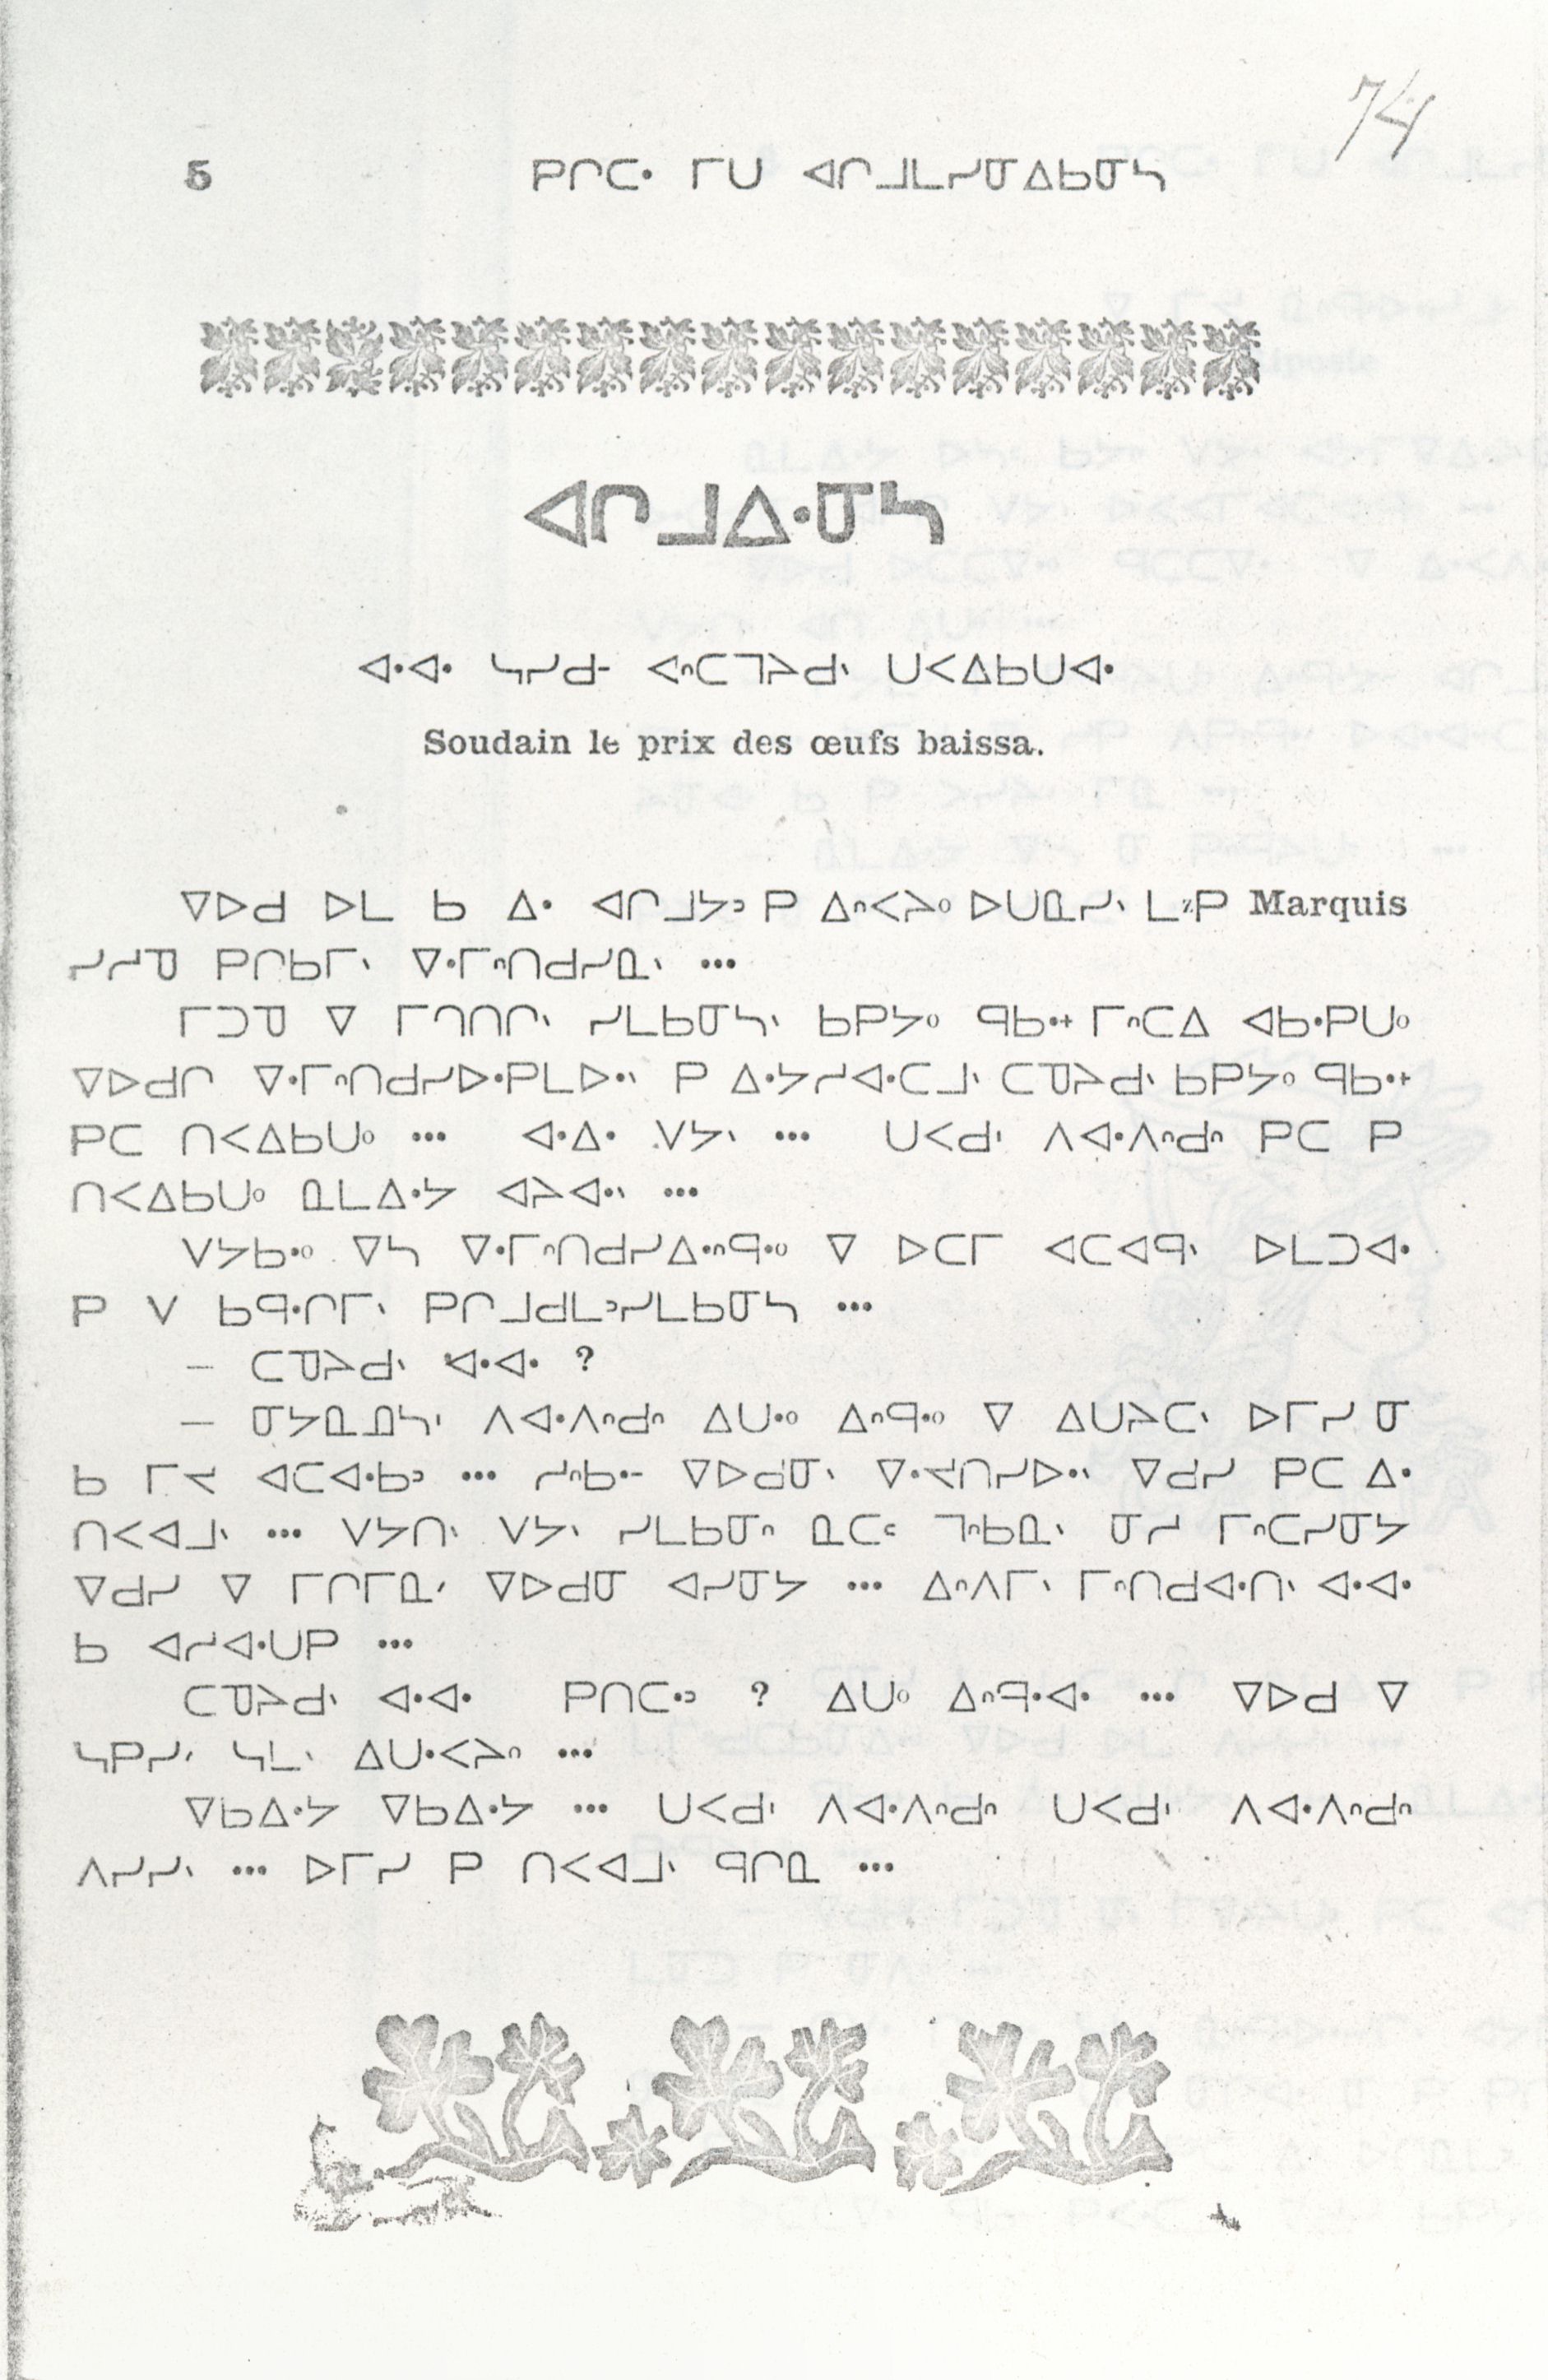 74
5 ᑭᒋᑕᐧ ᒥᑌ ᐊᒋᒧᒪᓯᓂᐃᑲᓂᓴ
ᐊᒋᒧᐃᐧᓂᓴ
ᐊᐧᐊᐧ ᓴᓯᑯᐨ ᐸᐢᑕᒣᔨᑯᐠ ᑌᐸᐃᑲᑌᐊᐧ
Soudain le prix des œufs baissa.
ᐁᐅᑯ ᐅᒪ ᑲ ᐃᐧ ᐊᒋᒧᔭᐣ ᑭ ᐃᐢᐸᔨᐤ ᐅᑌᓇᓯᐠ ᒪᐢᑭ Marquis
ᓯᓯᑫ ᑭᒋᑲᒥᐠ ᐁᐧᒥᐢᑎᑯᓯᓇᐠ •••
ᒥᑐᑫ ᐁ ᒥᒉᑎᒋᐠ ᓯᒪᑲᓂᓴᐠ ᑲᑭᔭᐤ ᑫᑲᐧᐩ ᒥᐢᑕᐃ ᐊᑲᐧᑭᑌᐤ
ᐁᐅᑯᒋ ᐁᐧᒥᐢᑎᑯᓯᐅᐧᑭᒪᐅᐧᐠ ᑭ ᐃᐧᔭᓯᐊᐧᑕᒧᐠ ᑕᓀᔨᑯᐠ ᑲᑭᔭᐤ ᑫᑲᐧᐩ
ᑭᑕ ᑎᐸᐃᑲᑌᐤ ••• ᐊᐧᐃᐧ ᐯᔭᐠ ••• ᑌᐸᑯᑊ ᐱᐊᐧᐱᐢᑯᐢ ᑭᑕ ᑭ
ᑎᐸᐃᑲᑌᐤ ᓇᒪᐃᐧᔭ ᐊᔨᐊᐧᐠ •••
ᐯᔭᑲᐧᐤ ᐁᓴ ᐁᐧᒥᐢᑎᑯᓯᐃᐧᐢᑫᐧᐤ ᐁ ᐅᑕᒥ ᐊᑕᐊᑫᐠ ᐅᒪᑐᐊᐧ
ᑭ ᐯ ᑲᑫᐧᒋᒥᐠ ᑭᒋᒧᑯᒪᐣᓯᒪᑲᓂᓴ •••
— ᑕᓀᔨᑯᐠ ᐊᐧᐊᐧ ?
— ᓂᔭᓇᓄᓴᑊ ᐱᐊᐧᐱᐢᑯᐢ ᐃᑌᐧᐤ ᐃᐢᑫᐧᐤ ᐁ ᐃᑌᔨᑕᐠ ᐅᒥᓯ ᓂ
ᑲ ᒥᔪ ᐊᑕᐊᐧᑲᐣ ••• ᓯᐢᑲᐧᐨ ᐁᐅᑯᓂᐠ ᐁᐧᔪᑎᓯᐅᐧᐠ ᐁᑯᓯ ᑭᑕ ᐃᐧ
ᑎᐸᐊᒧᐠ ••• ᐯᔭᑎᐠ ᐯᔭᐠ ᓯᒪᑲᓂᐢ ᓇᑕᐟ ᒣᐢᑲᓇᐠ ᓂᓯ ᒥᐢᑕᓯᓂᔭ
ᐁᑯᓯ ᐁ ᒥᒋᒥᓇᐟ ᐁᐅᑯᓂ ᐊᓯᓂᔭ ••• ᐃᐢᐱᒥᐠ ᒥᐢᑎᑯᐊᐧᑎᐠ ᐊᐧᐊᐧ
ᑲ ᐊᓯᐊᐧᑌᑭ •••
ᑕᓀᔨᑯᐠ ᐊᐧᐊᐧ ᑭᑎᑕᐧᐣ ? ᐃᑌᐤ ᐃᐢᑫᐧᐊᐧ ••• ᐁᐅᑯ ᐁ
ᓴᑭᓯᐟ ᓴᒪᐠ ᐃᑌᐧᐸᔨᐢ •••
ᐁᑲᐃᐧᔭ ᐁᑲᐃᐧᔭ ••• ᑌᐸᑯᑊ ᐱᐊᐧᐱᐢᑯᐢ ᑌᐸᑯᑊ ᐱᐊᐧᐱᐢᑯᐢ
ᐱᓯᓯᐠ ••• ᐅᒥᓯ ᑭ ᑎᐸᐊᒧᐠ ᑫᒋᓇ •••